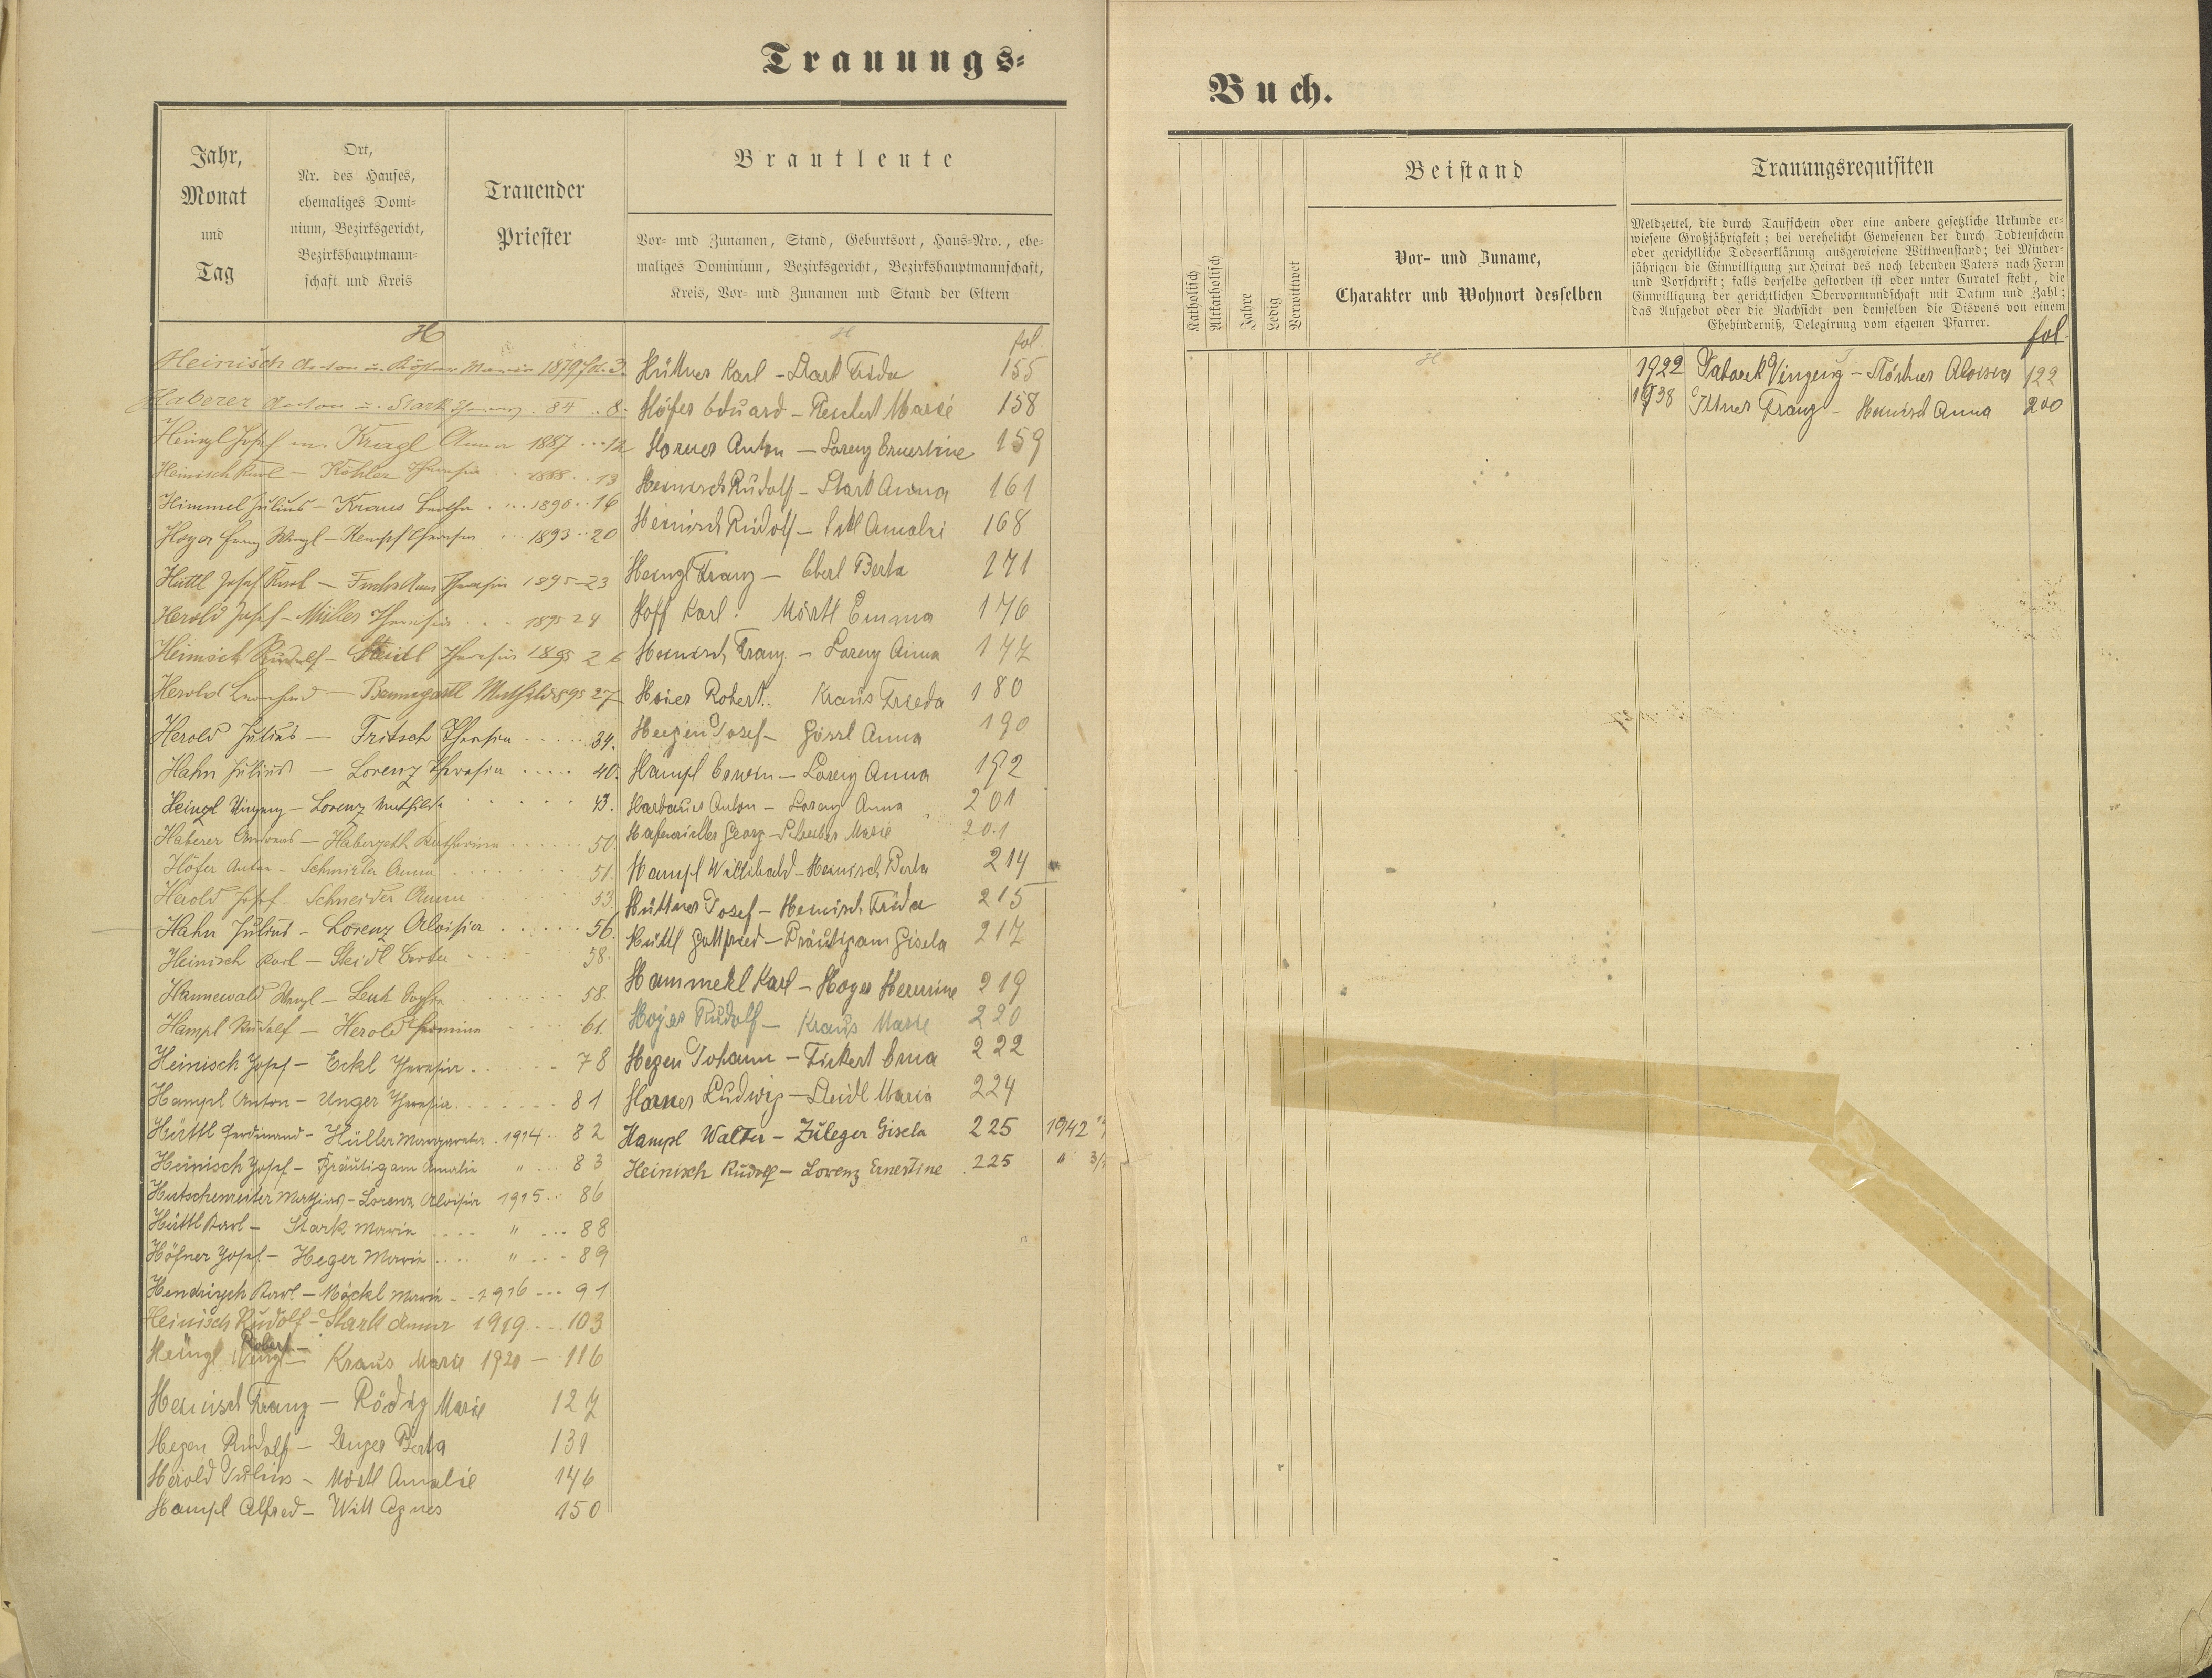 Trauungs-
Jahr,
Monat
und
Tag
Ort,
Nr. des Hauses,
ehemaliges Domi-
nium, Bezirksgericht,
Bezirkshauptmann-
schaft und Kreis
Trauender
Priester
Brautleute
Vor- und Zunamen, Stand, Geburtsort, Haus-Nro., ehe-
maliges Dominium, Bezirksgericht, Bezirkshauptmannschaft,
Kreis, Vor- und Zunamen und Stand der Eltern
H
Heinisch Anton u. Maria 1879 fol. 3.
Haberer Anton u. Stark 84 .. 8.
Heinzl Josef m. Kragl Anna 1887 ... 12
Heinisch Karl - Köhler Theresia .. 1888 .. 13
Himmel Julius - Kraus Bertha ... 1890 .. 16
Hoyer Franz Wenzl - Kempf Theresia ... 1893 .. 20
Hüttl Josef Karl - Theresia 1895 - 23
Herold Josef - Müller Theresia ... 1895 24
Heinisch Rudolf - Steidl Theresia 1895 26
Herold - Baumgartl Mathilde 895 27
Herold Julius - Fritsch Theresia ..... 34.
Hahn Julius - Lorenz Theresia ..... 40.
Heinzl Vinzenz - Lorenz Mathilde ..... 43.
Haberer Andreas - Haberzettl Katharina ..... 50.
Höfer Anton - Anna ..... 51.
Herold Josef - Schneider Anna ..... 53.
Hahn Julius - Lorenz Aloisia ..... 56.
Heinisch Karl - Steidl Berta ..... 58.
Hannewald Wenzl - Leut Sophie ..... 58.
Hampl Rudolf - Herold Hermine ..... 61.
Heinisch Josef - Eckl Theresia ..... 78
Hampl Anton - Unger Theresia ..... 81
Hüttl Ferdinand - Hüller Margareta . 1914 .. 82
Heinisch Josef - Bräutigam Amalia " ... 83
Hutschenreiter Mathias - Lorenz Aloisia 1915 .. 86
Hüttl Karl - Stark Maria .... " ... 88
Höfner Josef - Heger Maria .... " ... 89
Hendrisch Karl - Möckl Maria - 1916 --- 91
Heinisch Rudolf - Stark Anna 1919 ... 103
Robert -
Heinzl Wenzl - Kraus Marie 1920 - 116
Heinisch Franz - Rödig Marie 127
Hegen Rudolf - Unger Berta 139
Herold Julius - Mörtl Amalie 146
Hampl Alfred - Witt Agnes 150
H
fol.
Hüttner Karl - Stark Frida 155
Höfer Eduard - Reichert Marie 158
Horner Anton - Lorenz Ernestine 159
Heinisch Rudolf - Stark Anna 161
Heinisch Rudolf - Amalie 168
Heinzl Franz - Eberl Berta 171
Hoff Karl. Mörtl Emma 176
Heinisch Franz - Lorenz Anna 177
Hoier Robert. Kraus Frieda 180
Heegen Josef - Gössl Anna 190
Hampl Erwin - Lorenz Anna 192
Harbauer Anton - Lorenz Anna 201
Hafenrichter Georg - Schreiber Marie 201
Hampl Willibald - Heinisch Berta 214
Hüttner Josef - Heinisch Frida 215
Hüttl Gottfried - Bräutigam Gisela 217
Hammerl Karl - Hoyer Hermine 219
Hojer Rudolf - Kraus Marie 220
Hegen Johann - Fickert Erna 222
Horner Ludwig - Steidl Maria 224
Hampl Walter - Züleger Gisela 225 1942
Heinisch Rudolf - Lorenz Ernestine 225 "
Buch.
Katholisch
Altkatholisch
Jahre
Ledig
Verwittwet
Beistand
Vor- und Zuname,
Charakter unb Wohnort desselben
Trauungsrequisiten
Meldzettel, die durch Taufschein oder eine andere gesetzliche Urkunde er-
wiesene Großjährigkeit; bei verehelicht Gewesenen der durch Todtenschein
oder gerichtliche Todeserklärung ausgewiesene Wittwenstand; bei Minder-
jährigen die Einwilligung zur Heirat des noch lebenden Vaters nach Form
und Vorschrift; falls derselbe gestorben ist oder unter Curatel steht, die
Einwilligung der gerichtlichen Obervormundschaft mit Datum und Zahl;
das Aufgebot oder die Nachsicht von demselben die Dispens von einem
Ehebinderniß, Delegirung vom eigenen Pfarrer.
fol
1922 Vinzenz - Aloisia 122
1938 Illner Franz - Heinisch Anna 200